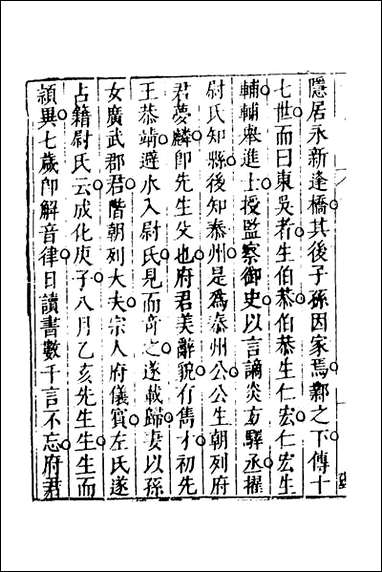 隱居永新逢橋其後子孫因家焉鄰之下傳十
七世而曰東吳者生伯恭伯恭生仁宏仁宏生
輔輔舉進士授監察御史以言謫炎方驛丞擢
尉氏知縣後知泰州是為泰州公公生朝列府
君夢麟即先生父也府君美辭貌有雋才初先
王恭靖避水入尉氏見而奇之遂載歸妻以孫
女廣武郡君階朝列大夫宗人府儀賓左氏遂
占籍尉氏云成化庚子八月乙亥先生生生而
頴異七歲即解音律日讀書數千言不忘府君